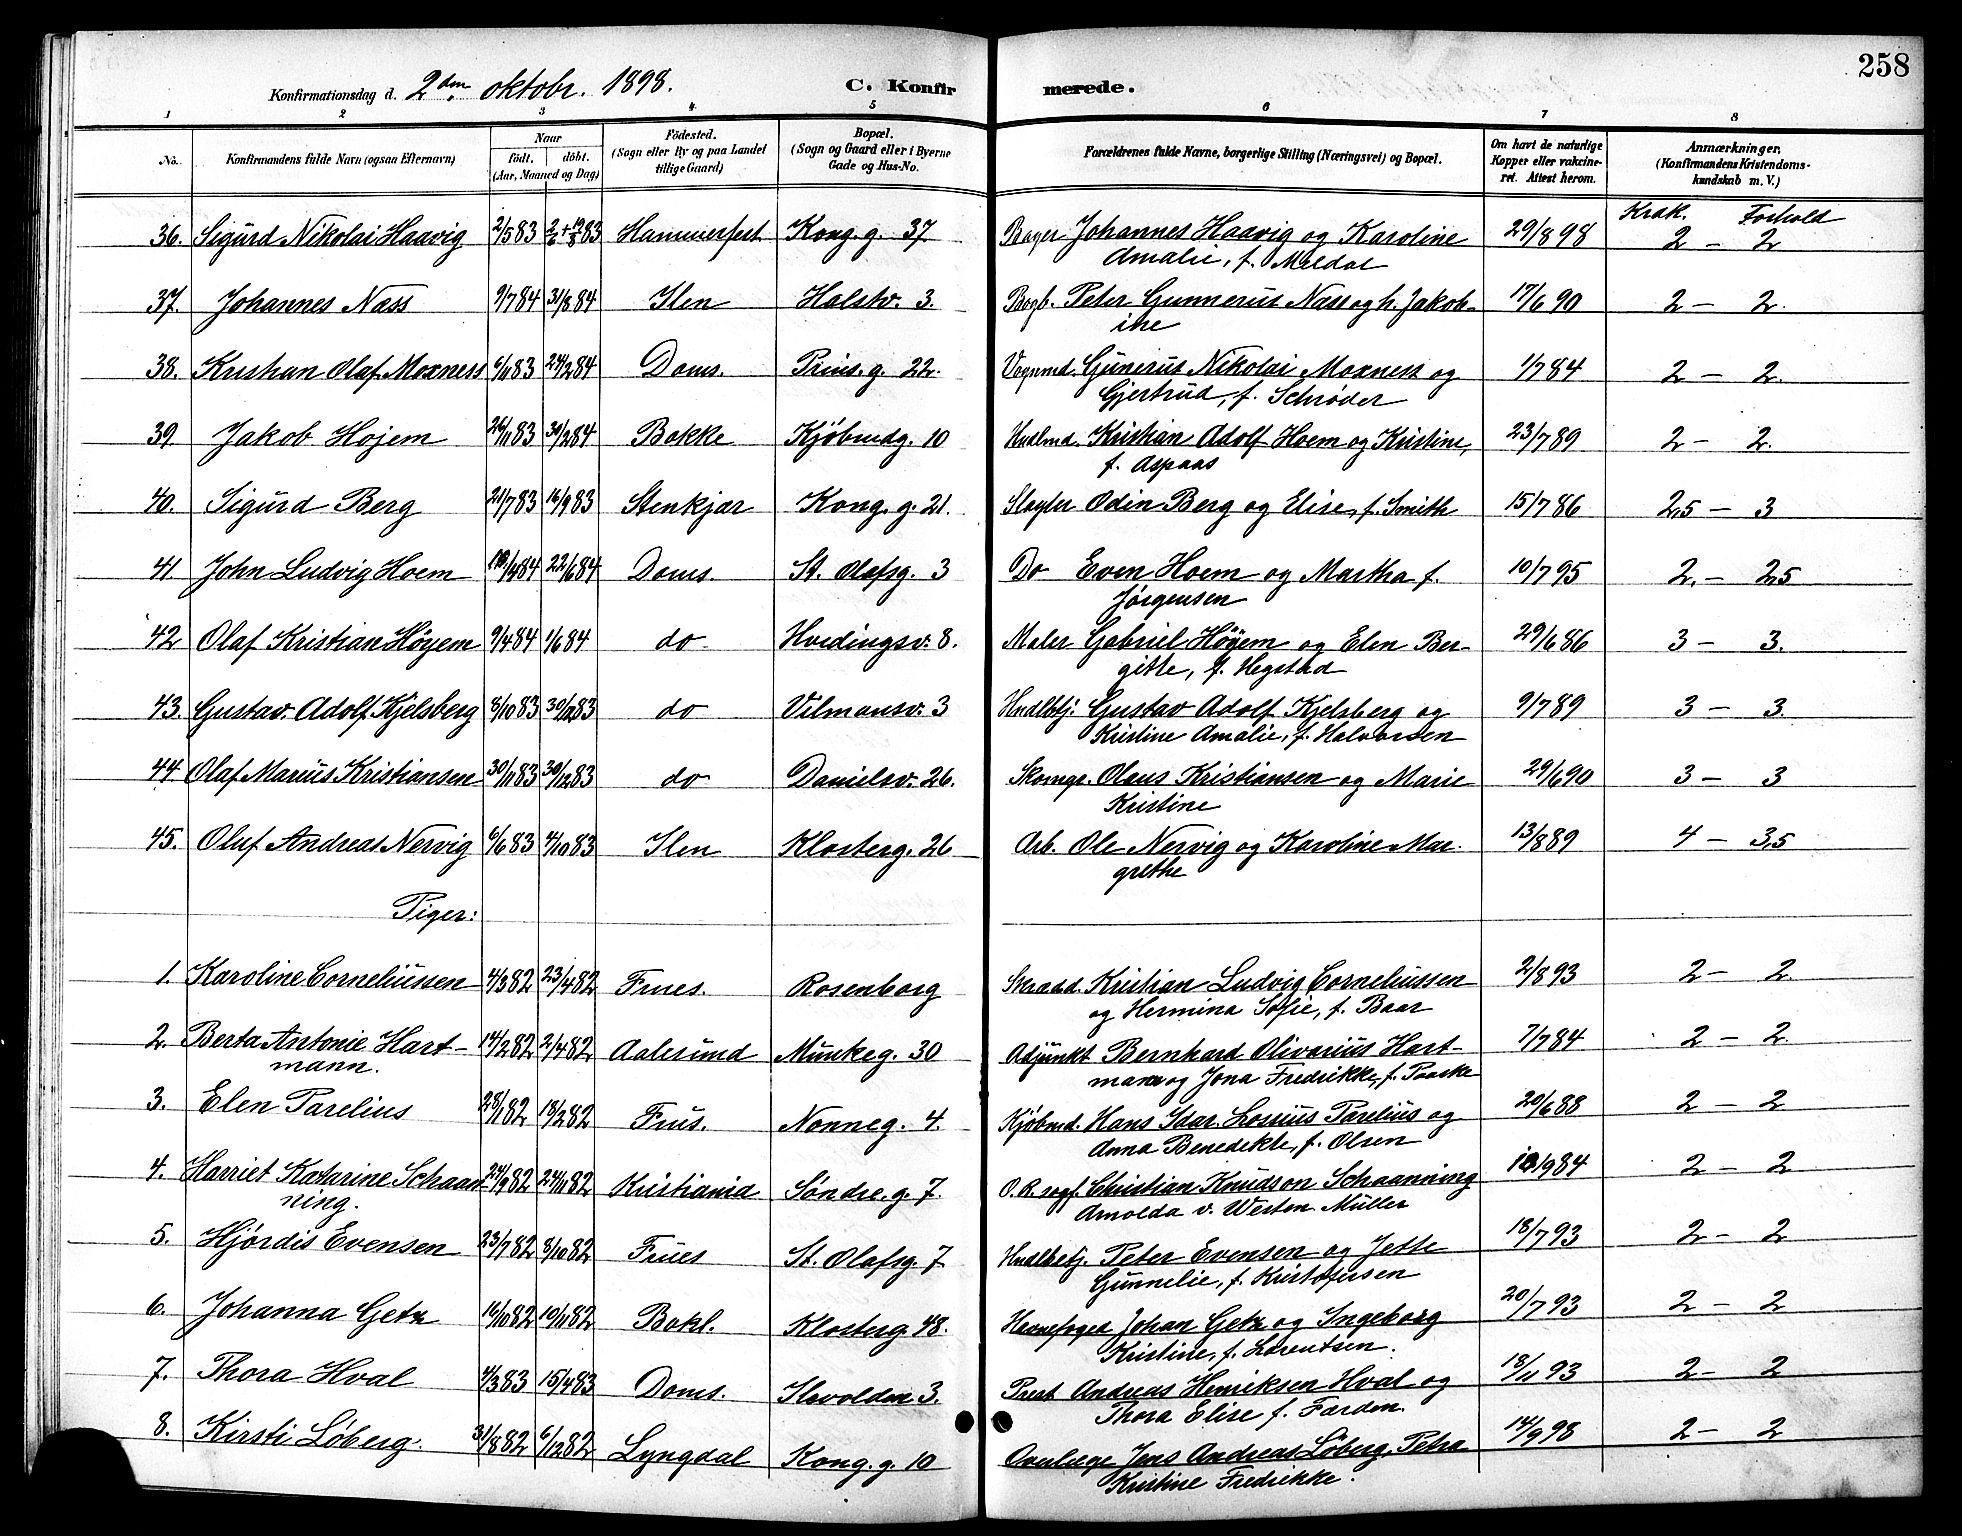 258
Konfirmationsdag d. 2den oktobr. 1898.
C. Konfirmerede.
1 2 3 4 5 6 7 8
No. Konfirmandens fulde Navn (ogsaa Efternavn) Naar født. døbt. (Aar, Maaned og Dag) Fødested. (Sogn eller By og paa Landet tillige Gaard) Bopæl. (Sogn og Gaard eller i Byerne Gade og Hus-No. Forældrenes fulde Navne, borgerlige Stilling (Næringsvei) og Bopæl. Om havt de naturlige Kopper eller vakcineret. Attest herom. Anmærkninger. (Konfirmandens Kristendomskundskab m. V.)
Krsk. Forhold
36. Sigurd Nikolai Haavig 2/5 83 2/6 + 12/8 83 Hammerfest Kong. g. 37 Bager Johannes Haavig og Karoline 29/8 98 2 - 2
Amalie, f. Meldal
37. Johannes Næss 9/7 84 31/8 84 Ilen Halstv. 3. Bogb. Peter Gunnerus Næss og h. Jakob- 17/6 90 2 - 2.
ine
38. Kristian Olaf Moxness 6/11 83 24/2 84 Doms. Prins. g. 22. Vognmd. Gunerus Nikolai Moxness og 1/7 84 2 - 2.
Gjertrud, f. Schrøder
39 Jakob Hojem 26/11 83 30/2 84 Bakke Kjøbmdg. 10 Hndlmd. Kristian Adolf Hoem og Kristine, 23/7 89 2 - 2.
f. Aspaas
40. Sigurd Berg 21/7 83 16/9 83 Stenkjær Kong. g. 21. Slagter Odin Berg og Elise, f. Smith 15/7 86 2,5 - 3
41. John Ludvig Hoem 10/4 84 22/6 84 Doms. St. Olafsg. 3 Do Even Hoem og Martha f. 10/7 95 2. - 2,5
Jørgensen
42 Olaf Kristian Höyem 9/4 84 1/6 84 do Hvedingsv. 8. Maler Gabriel Höyem og Elen Ber- 29/6 86 3 - 3.
gitte, f. Hegstad
43. Gustav Adolf Kjelsberg 8/10 83 30/12 83 do Vilmansv. 3 Hndlbtj. Gustav Adolf Kjelsberg og 9/7 89 3 - 3.
Kristine Amalie, f. Halvorsen
44. Olaf Marius Kristiansen 30/11 83 30/12 83 do Danielsv. 26. Skomgr. Olaus Kristiansen og Marie 29/6 90 3 - 3
Kristine
45. Oluf Andreas Nervig 6/6 83 4/10 83 Ilen Klosterg. 26 Arb. Ole Nervig og Karoline Mar- 13/8 89 4 - 3,5
grethe
Piger:
1. Karoline Corneliussen 4/3 82 23/4 82 Frues. Rosenborg Kristian Ludvig Corneliussen 2/8 93 2 - 2.
og Hermina Sofie, f. Baar
2. Berta Antonie Hart- 14/2 82 2/4 82 Aalesund Munkeg. 30 Adjunkt Bernhard Olivarius Hart- 7/7 84 2 - 2.
mann. mann og Jona Fredrikke, f. Paaske
3. Elen Parelius 28/1 82 18/2 82 Frus. Nonneg. 4. Kjøbmd. Hans Isac Lossius Parelius og 20/6 88 2 - 2
Anna Benedikte, f. Olsen
4. Harriet Katarine Schaan- 24/9 82 24/11 82 Kristiania Søndre. g. 7. O. R. sagf. Christian Knudson Schaanning 1984 2 - 2
ning. Arnolda v. Westen Müller
5. Hjørdis Evensen 23/7 82 8/10 82 Frues St. Olafsg. 7 Hndlbetj. Peter Evensen og Jette 18/7 93 2 - 2
Gunnelie, f. Kristofersen
6. Johanna Getz 16/10 82 19/11 82 Bakl. Klosterg. 48. Havnefoged Johan Getz og Ingeborg 20/7 93 2 - 2
Kristine, f. Lorentsen.
7. Thora Hval 4/3 83 15/4 83 Doms. Ilevolden 3. Prest Andreas Henriksen Hval og 18/11 93 2 - 2
Thora Elise f. Farden.
8. Kirsti Löberg. 31/8 82 6/12 82 Lyngdal Kong. g. 10 Overlæge Jens Andreas Löberg, Petra 14/9 98 2 - 2
Kristine Fredrikke.